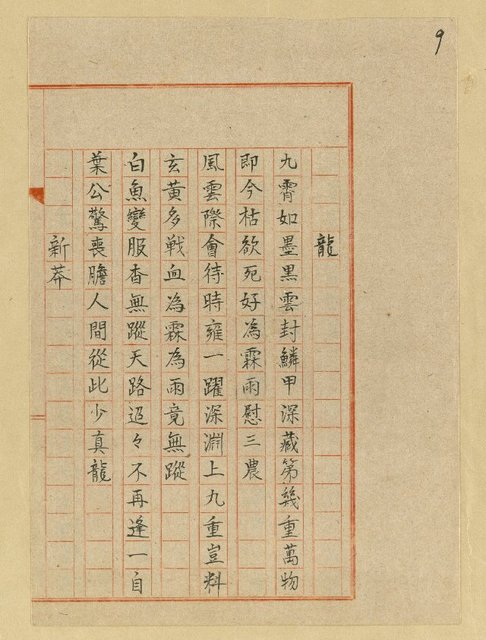 9
龍
九霄如墨黑雲封鱗甲深藏第幾重萬物
即今枯欲死好為霖雨慰三農
風雲際會待時雍一躍深淵上九重豈料
玄黃多戰血為霖為雨竟無蹤
白魚變服杳無蹤天路迢々不再逢一自
葉公驚喪膽人間從此少真龍
新莽